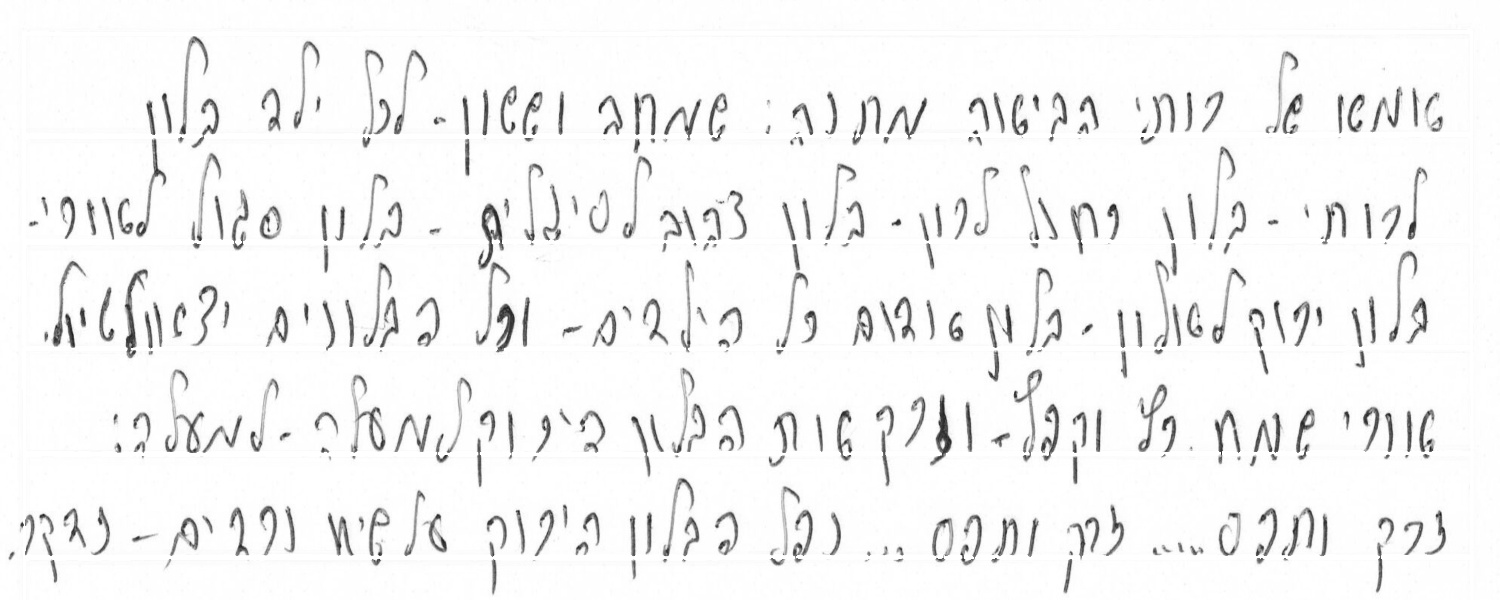 אמא של רותי הביאה מתנה: שמחה וששון - לכל ילד בלון
לרותי - בלון כחול לרון - בלון צהוב לסיגלית - בלון סגול לאורי -
בלון ירוק לאלון - בלון אדום כל הילדים - וכל הבלונים יצאו לטיול.
אורי שמח רץ וקפץ - וזרק אות הבלון הירוק למעלה - למעלה:
זרק ותפס .... זרק ותפס ... נפל הבלון הירוק על שיח ורדים - נדקר.